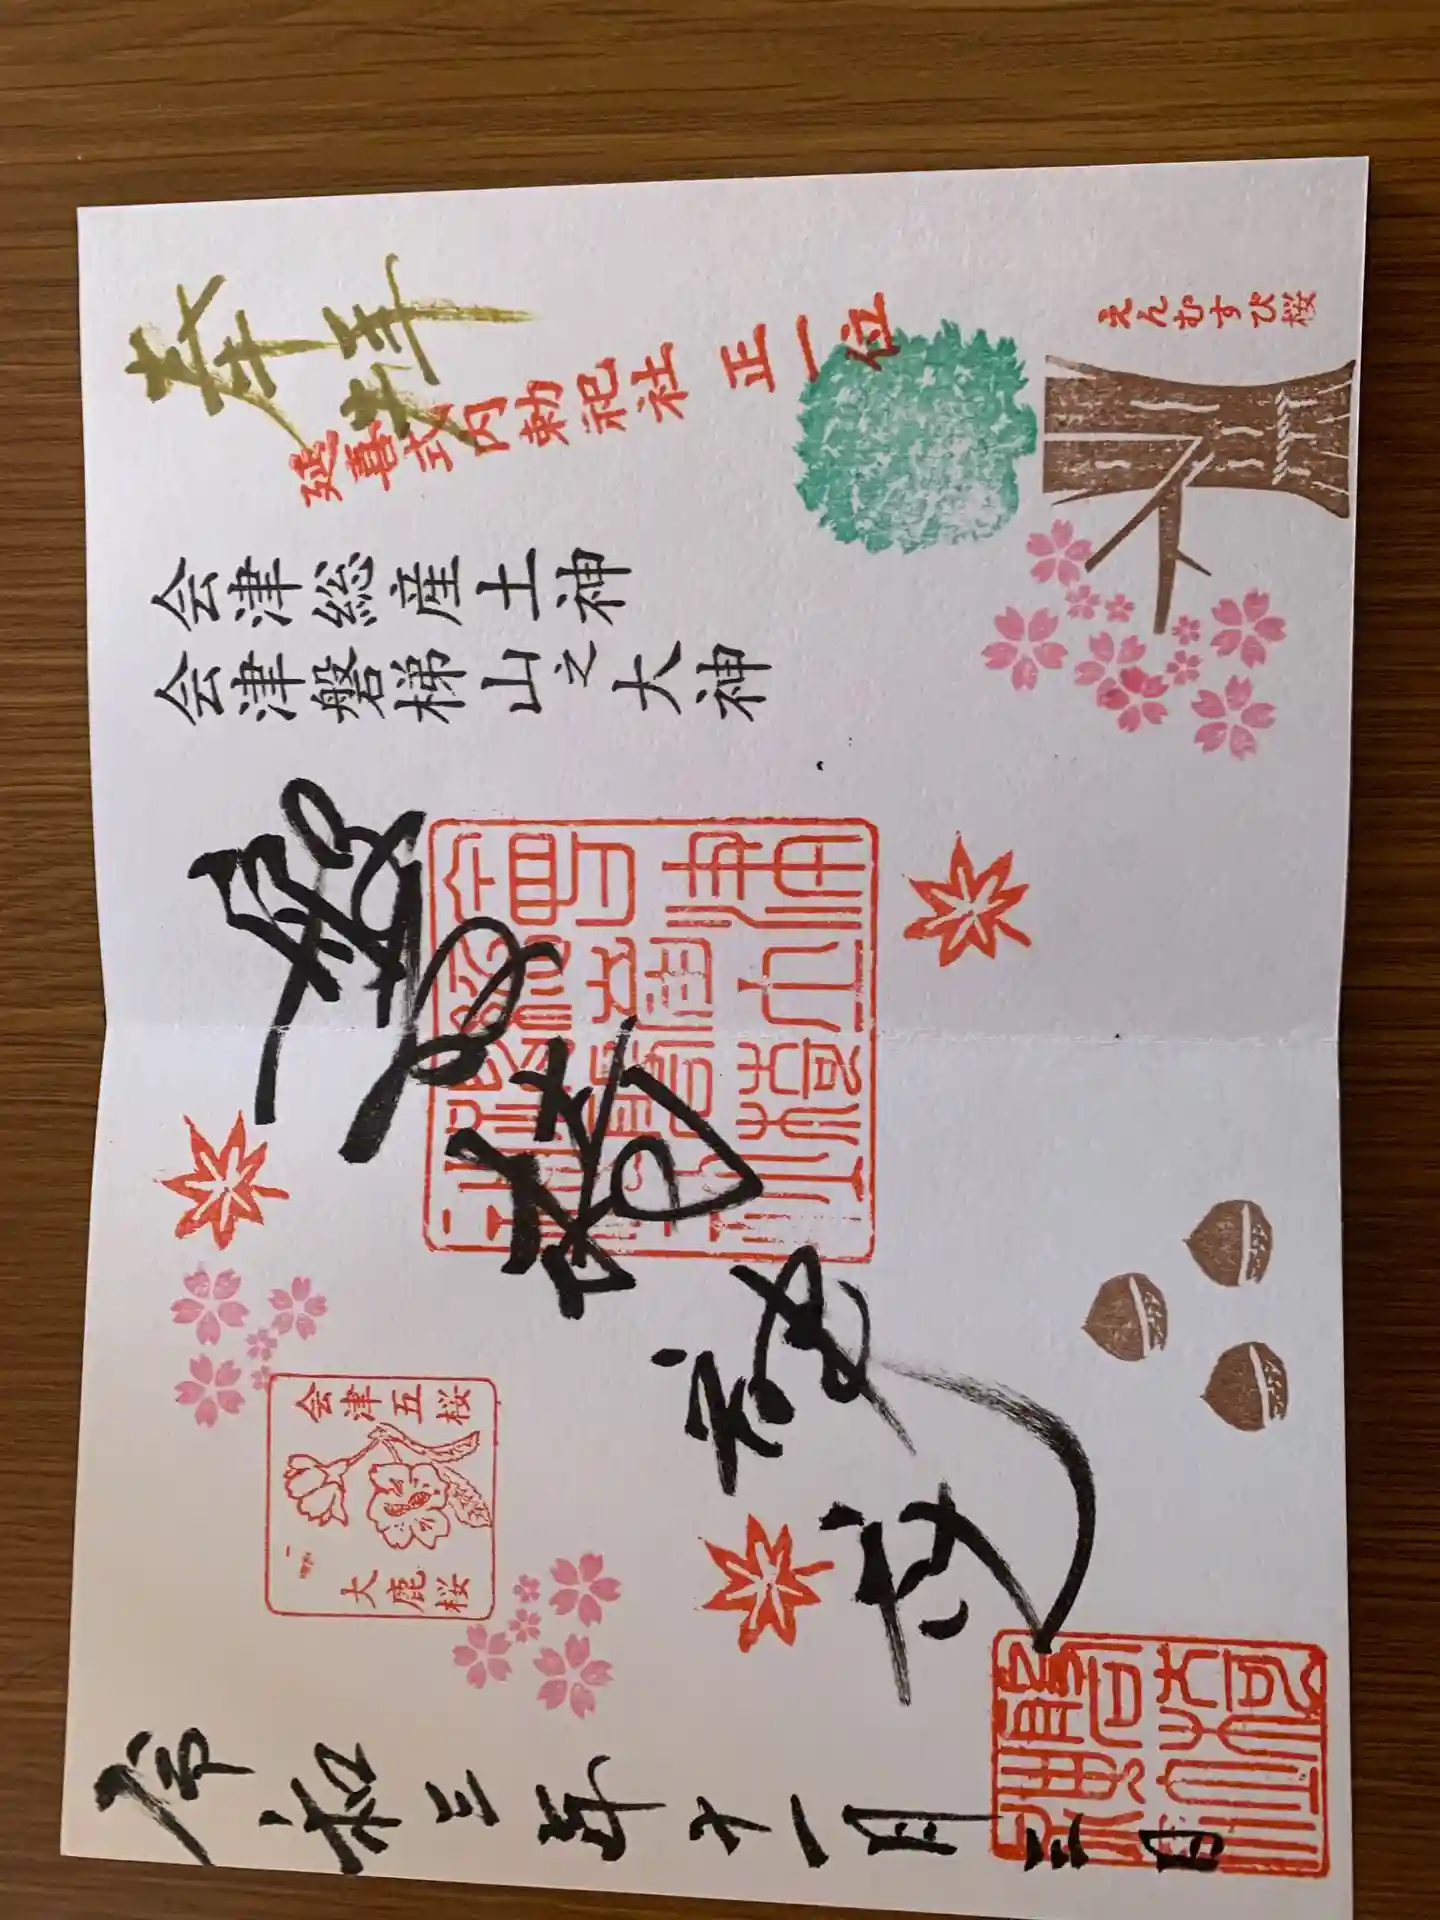 えんむすび桜
奉拝
延喜式内勅祀社 正一位
会津総産土神
会津磐梯山之大神
磐椅神社
会津五桜
大鹿桜
令和三年十一月三日